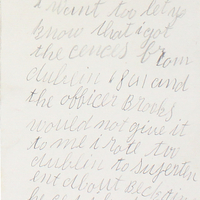 i want too let yo
know that i got
the cences from
dublin 1811 and
the officer Brooks
would not give it
to me i rote too
dublin to superten
ent about